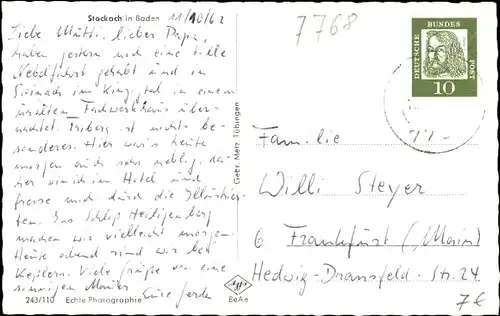 Stockach in Baden 11/10/62
7768
Liebe Mutti, lieber Papa,
haben gestern noch eine tolle
Nebelfahrt gehabt und in
im Kinzigtal in einem
uralten Fachwerkhaus über-
nachtet. Triberg ist nichts be-
sonderes. Hier war's heute
morgen auch sehr neblig, da-
her ich im Hotel und
fresse mich durch die Illustrier-
ten. Das Schloß Heiligenberg
machen wir vielleicht morgen.
Heute abend sind wir bei
Keplers. Viele Grüße von eine
sonnigen
Eure Gerda
243/110 Echte Photographie
Gebr. Metz, Tübingen
BeAe
DEUTSCHE BUNDES POST
10
Familie
Willi Steyer
6 Frankfurt (Main)
Hedwig-Dransfeld-Str. 24
7€